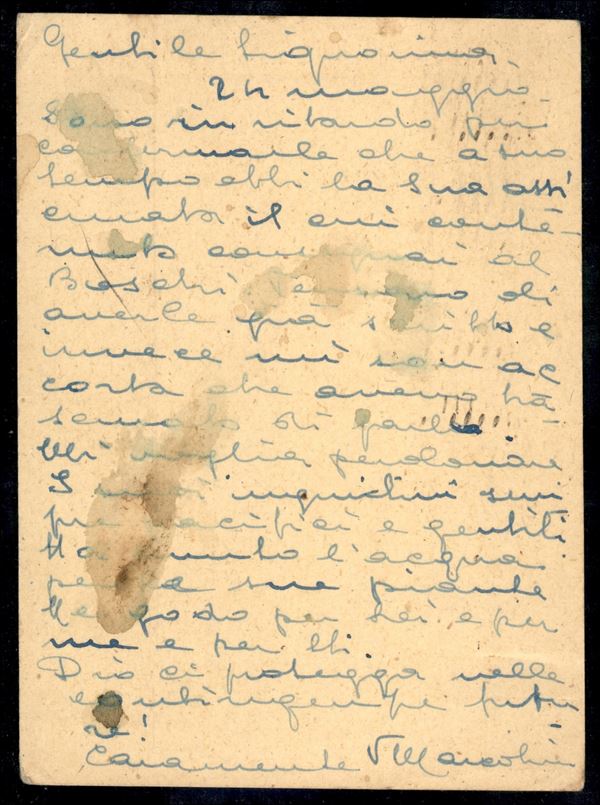 Gentile Signorina
24 maggio
Sono in ritardo per
confermarle che a suo
tempo ebbi la Sua assi
curata il cui conte-
nuto consegnai al
Boschi
averle già scritto e
invece mi son ac
corta che avevo tra
scurato di farlo
Mi voglia perdonare
I suoi inquilini sem
pre pacifici e gentili
Ha avuto l'acqua
per le sue piante
Ne godo per Lei e per
me e per tti.
Dio ci protegga nelle
contingenze futu
re!
Caramente V Marcolini